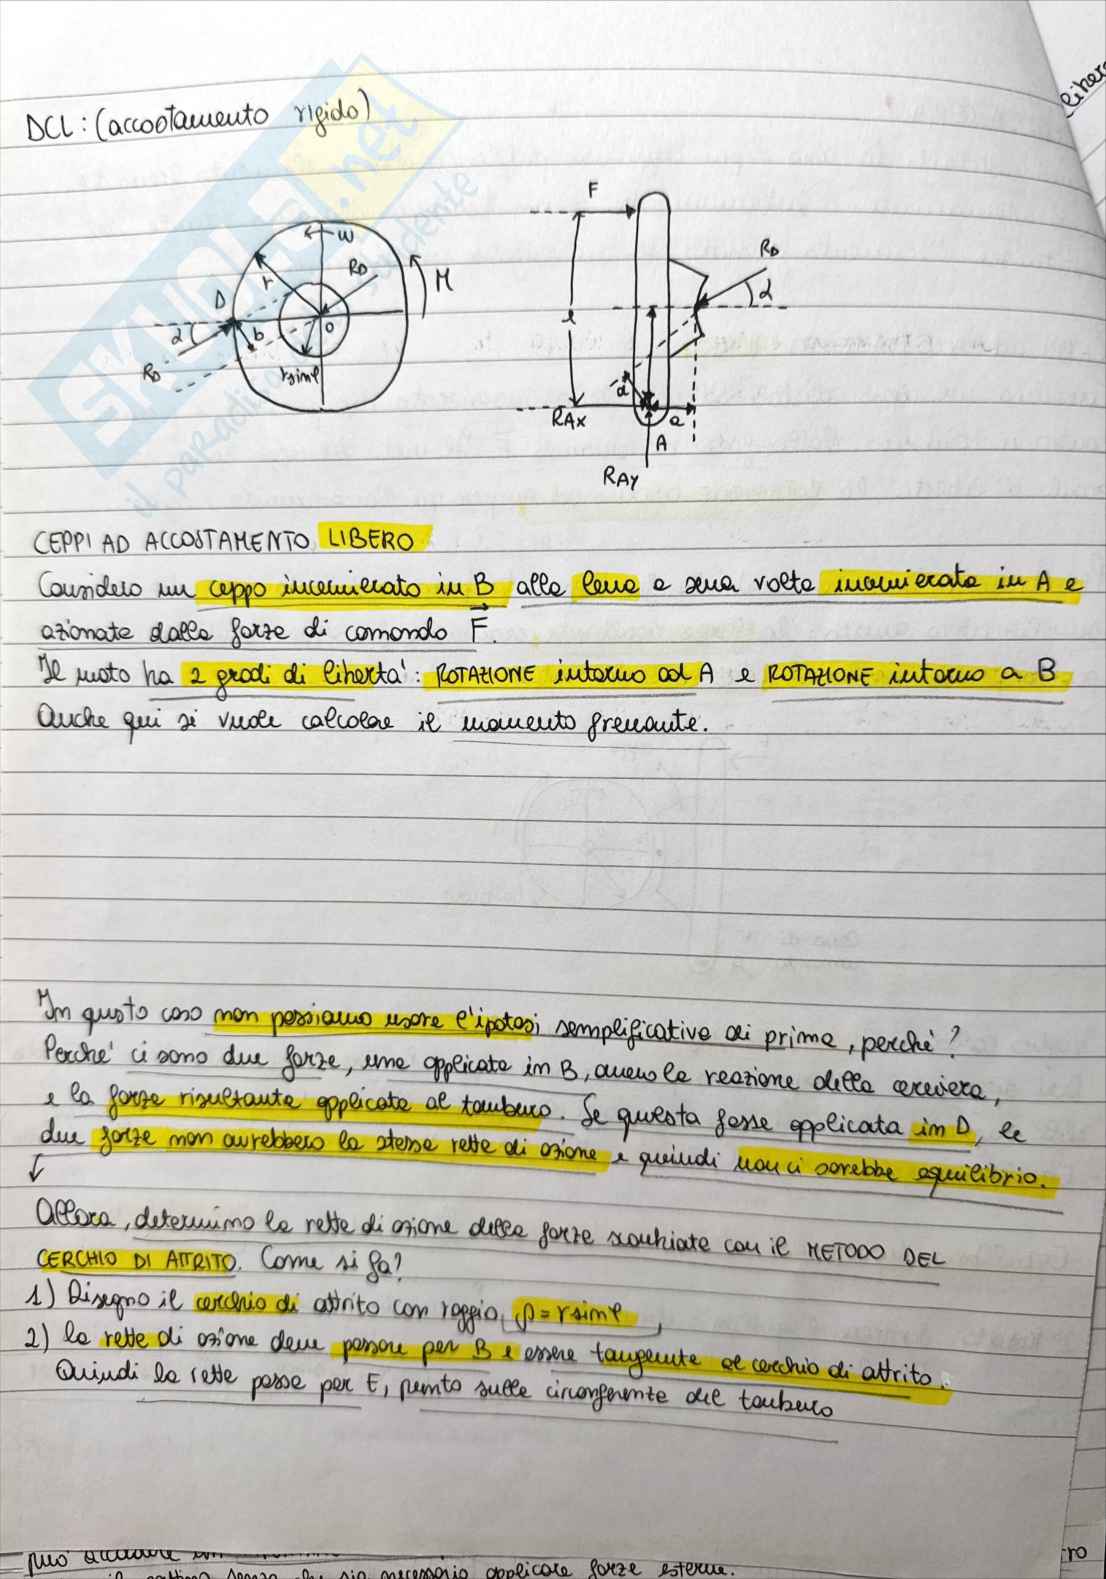 DCL: (accostamento rigido)
ω
F
r
RD
M
RD
D
α
α
O
b
l
RD
r sinφ
d
RAX
a
A
RAY
CEPPI AD ACCOSTAMENTO LIBERO
Considero un ceppo incernierato in B alla leva a sua volta incernierata in A e
azionata dalla forza di comando F.
Il moto ha 2 gradi di libertà: ROTAZIONE intorno ad A e ROTAZIONE intorno a B
Anche qui si vuole calcolare il momento frenante.
In questo caso non possiamo usare l'ipotesi semplificativa di prima, perché?
Perché ci sono due forze, una applicata in B, ovvero la reazione della cerniera,
e la forza risultante applicata al tamburo. Se questa fosse applicata in D, le
due forze non avrebbero la stessa retta di azione e quindi non ci sarebbe equilibrio.
Allora, determino la retta di azione della forza scambiata con il METODO DEL
CERCHIO DI ATTRITO. Come si fa?
1) Disegno il cerchio di attrito con raggio ρ = r sinφ,
2) la retta di azione deve passare per B e essere tangente al cerchio di attrito.
Quindi la retta passa per E, punto sulla circonferenza del tamburo
può accadere
senza che sia necessario applicare forze esterne.
SKUOLA.net
il paradiso dello studente